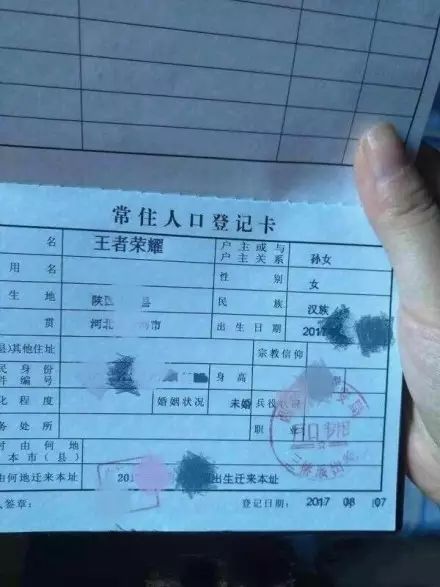 常住人口登记卡
名 王者荣耀 户主或与户主关系 孙女
用名 性别 女
生地 陕 县 民族 汉族
贯 河北 市 出生日期 2017
县)其他住址 宗教信仰
民身份件编号 身高
化程度 婚姻状况 未婚 兵役
务处所 职业
何由何地
本市(县)
由何地迁来本址 201 出生迁来本址
人签章: 登记日期: 2017 08 07